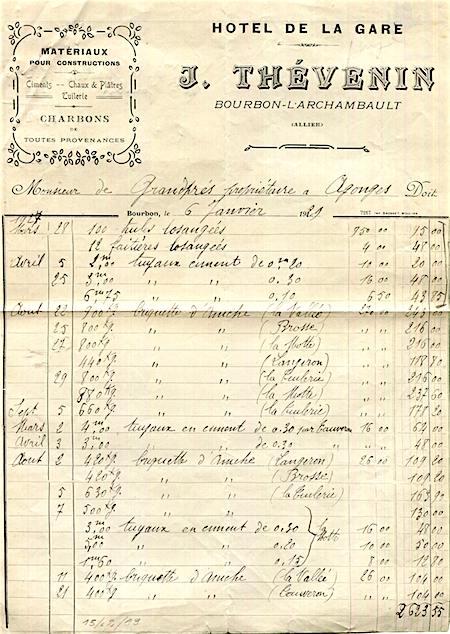 MATÉRIAUX
POUR CONSTRUCTIONS
Ciments -- Chaux & Plâtres
Tuilerie
CHARBONS
DE
TOUTES PROVENANCES
HOTEL DE LA GARE
J. THÉVENIN
BOURBON-L'ARCHAMBAULT
(ALLIER)
Monsieur de Grandprés propriétaire a Agonges Doit
Bourbon, le 6 Janvier 1929
Mars 28 100 tuils losangées 950 00 95 00
12 faitières losangées 4 00 48 00
Avril 5 2m00 tuyaux ciment de 0m20 10 00 20 00
25 3m00 " " 0.30 16 00 48 00
6m75 " " 0.10 6 50 43 85
Aout 22 900kg briquette d'Auche (la Vallée) 27 00 243 00
25 800kg " " (Brosse) " " 216 00
27 800kg " " (la Motte) " " 216 00
440kg " " (Langeron) " " 118 80
29 800kg " " (la tuilerie) " " 216 00
880kg " " (la Motte) " " 237 60
Sept 5 660kg " " (la tuilerie) " " 178 20
Mars 2 4m00 tuyaux en ciment de 0.30 16 00 64 00
Avril 3 3m00 " " de 0.30 " " " 48 00
Aout 2 420kg briquette d'Auche (Langeron) 26 00 109 20
420kg " " (Brosse) " " 109 20
5 630kg " " (la tuilerie) " " 163 90
7 500kg " " " " 130 00
3m00 tuyaux en ciment de 0.30 la Motte 16 00 48 00
5m00 " " 0.20 10 00 50 00
1m60 " " 0.15 8 00 12 80
11 400kg briquette d'Auche (la Vallée) 26 00 104 00
21 400kg " " (Couveron) " " 104 00
2623 55